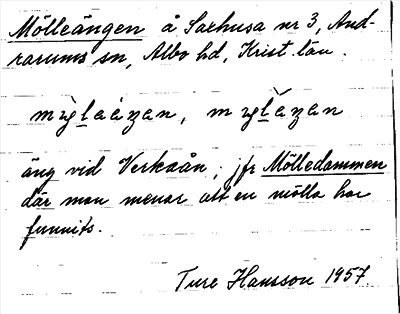 Mölleängen å Saxhusa nr 3, And-
rarums sn, Albo hd, Krist. län.
äng vid Verkaån; jfr Mölledammen
där man menar att en mölla har
funnits.
Ture Hansson 1957